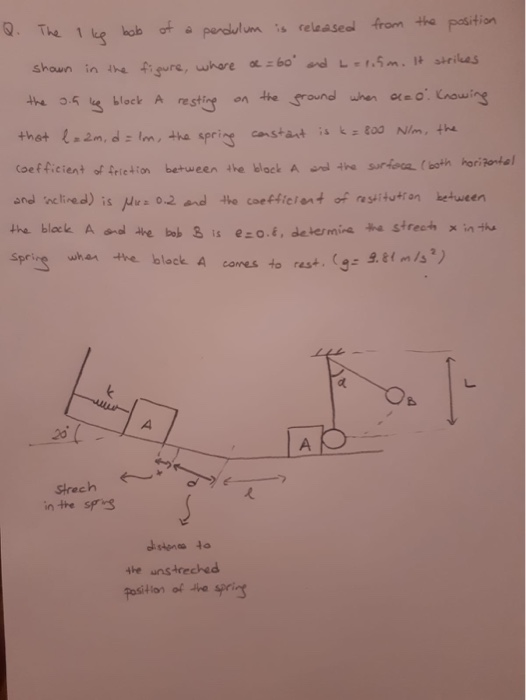 Q. The 1 kg bob of a pendulum is released from the position
shown in the figure, where α = 60° and L = 1.5m. It strikes
the 0.5 kg block A resting on the ground when α = 0°. Knowing
that l = 2m, d = 1m, the spring constant is k = 800 N/m, the
coefficient of friction between the block A and the surface (both horizontal
and inclined) is μk = 0.2 and the coefficient of restitution between
the block A and the bob B is e = 0.8, determine the strech x in the
spring when the block A comes to rest. (g = 9.81 m/s²)
k
A
20°
α
B
L
A
x
d
l
strech
in the spring
distance to
the unstreched
position of the spring